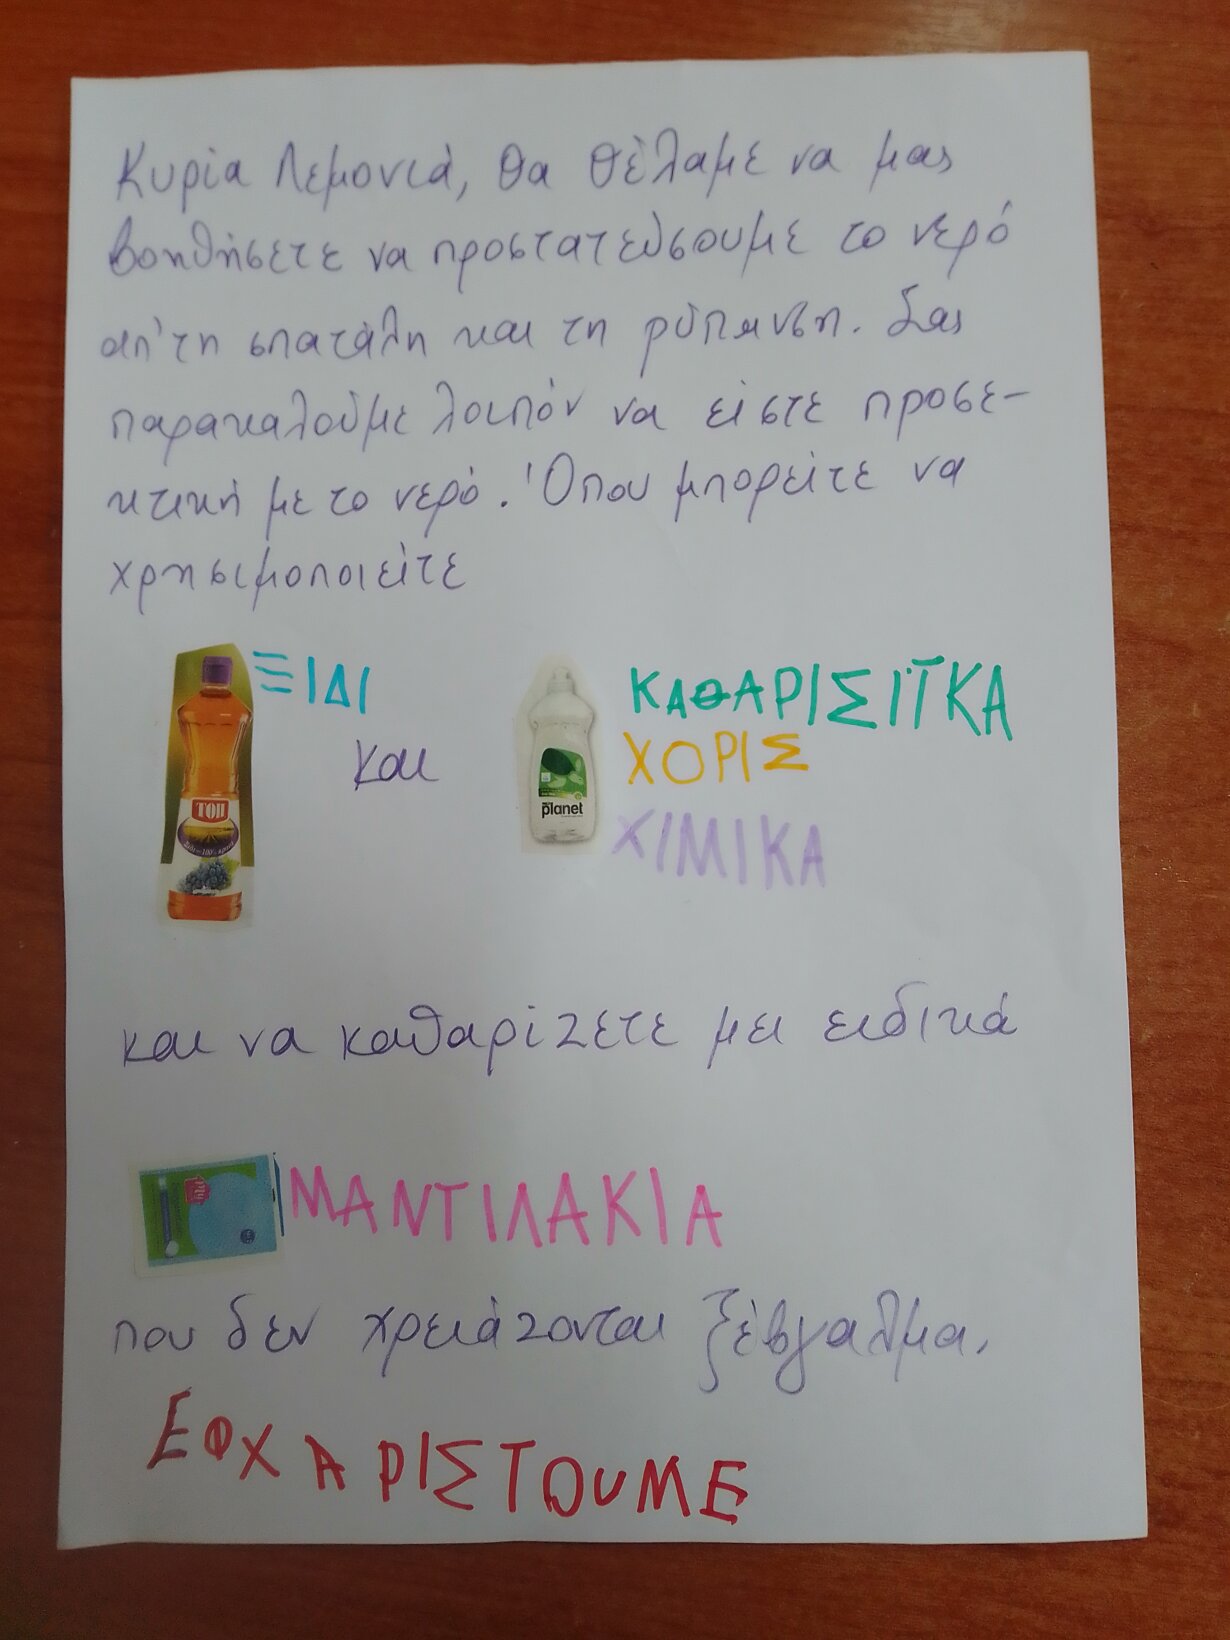 Κυρία Λεμονιά, θα θέλαμε να μας
βοηθήσετε να προστατεύσουμε το νερό
απ' τη σπατάλη και τη ρύπανση. Σας
παρακαλούμε λοιπόν να είστε προσε-
κτική με το νερό. Όπου μπορείτε να
χρησιμοποιείτε
ΞΙΔΙ
και
ΚΑΘΑΡΙΣΙΤΚΑ
ΧΟΡΙΣ
ΧΙΜΙΚΑ
ΤΟΠ
planet
και να καθαρίζετε με ειδικά
ΜΑΝΤΙΛΑΚΙΑ
που δεν χρειάζονται ξέβγαλμα.
ΕΦΧΑΡΙΣΤΟΥΜΕ